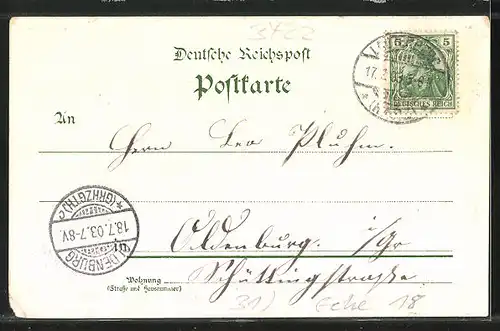 Deutsche Reichspost
Postkarte
5 5
DEUTSCHES REICH
17.
An
Herrn Leo Pluhm.
OLDENBURG
18.7.03.7-8V.
*(GRHZGTH)c
in
Oldenburg. i/Gr
Wohnung
(Straße und Hausnummer)
Schüttingstraße
31) Ecke 18